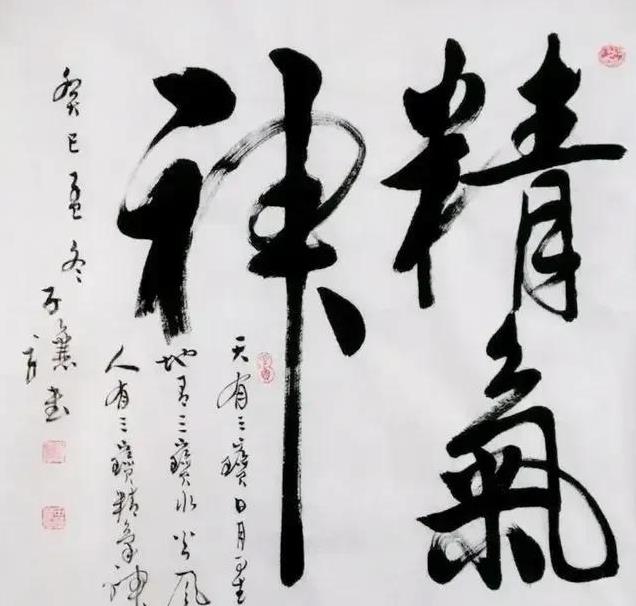 精氣
神
天有三寶日月星
地有三寶水火風
人有三寶精氣神
癸巳孟冬
书